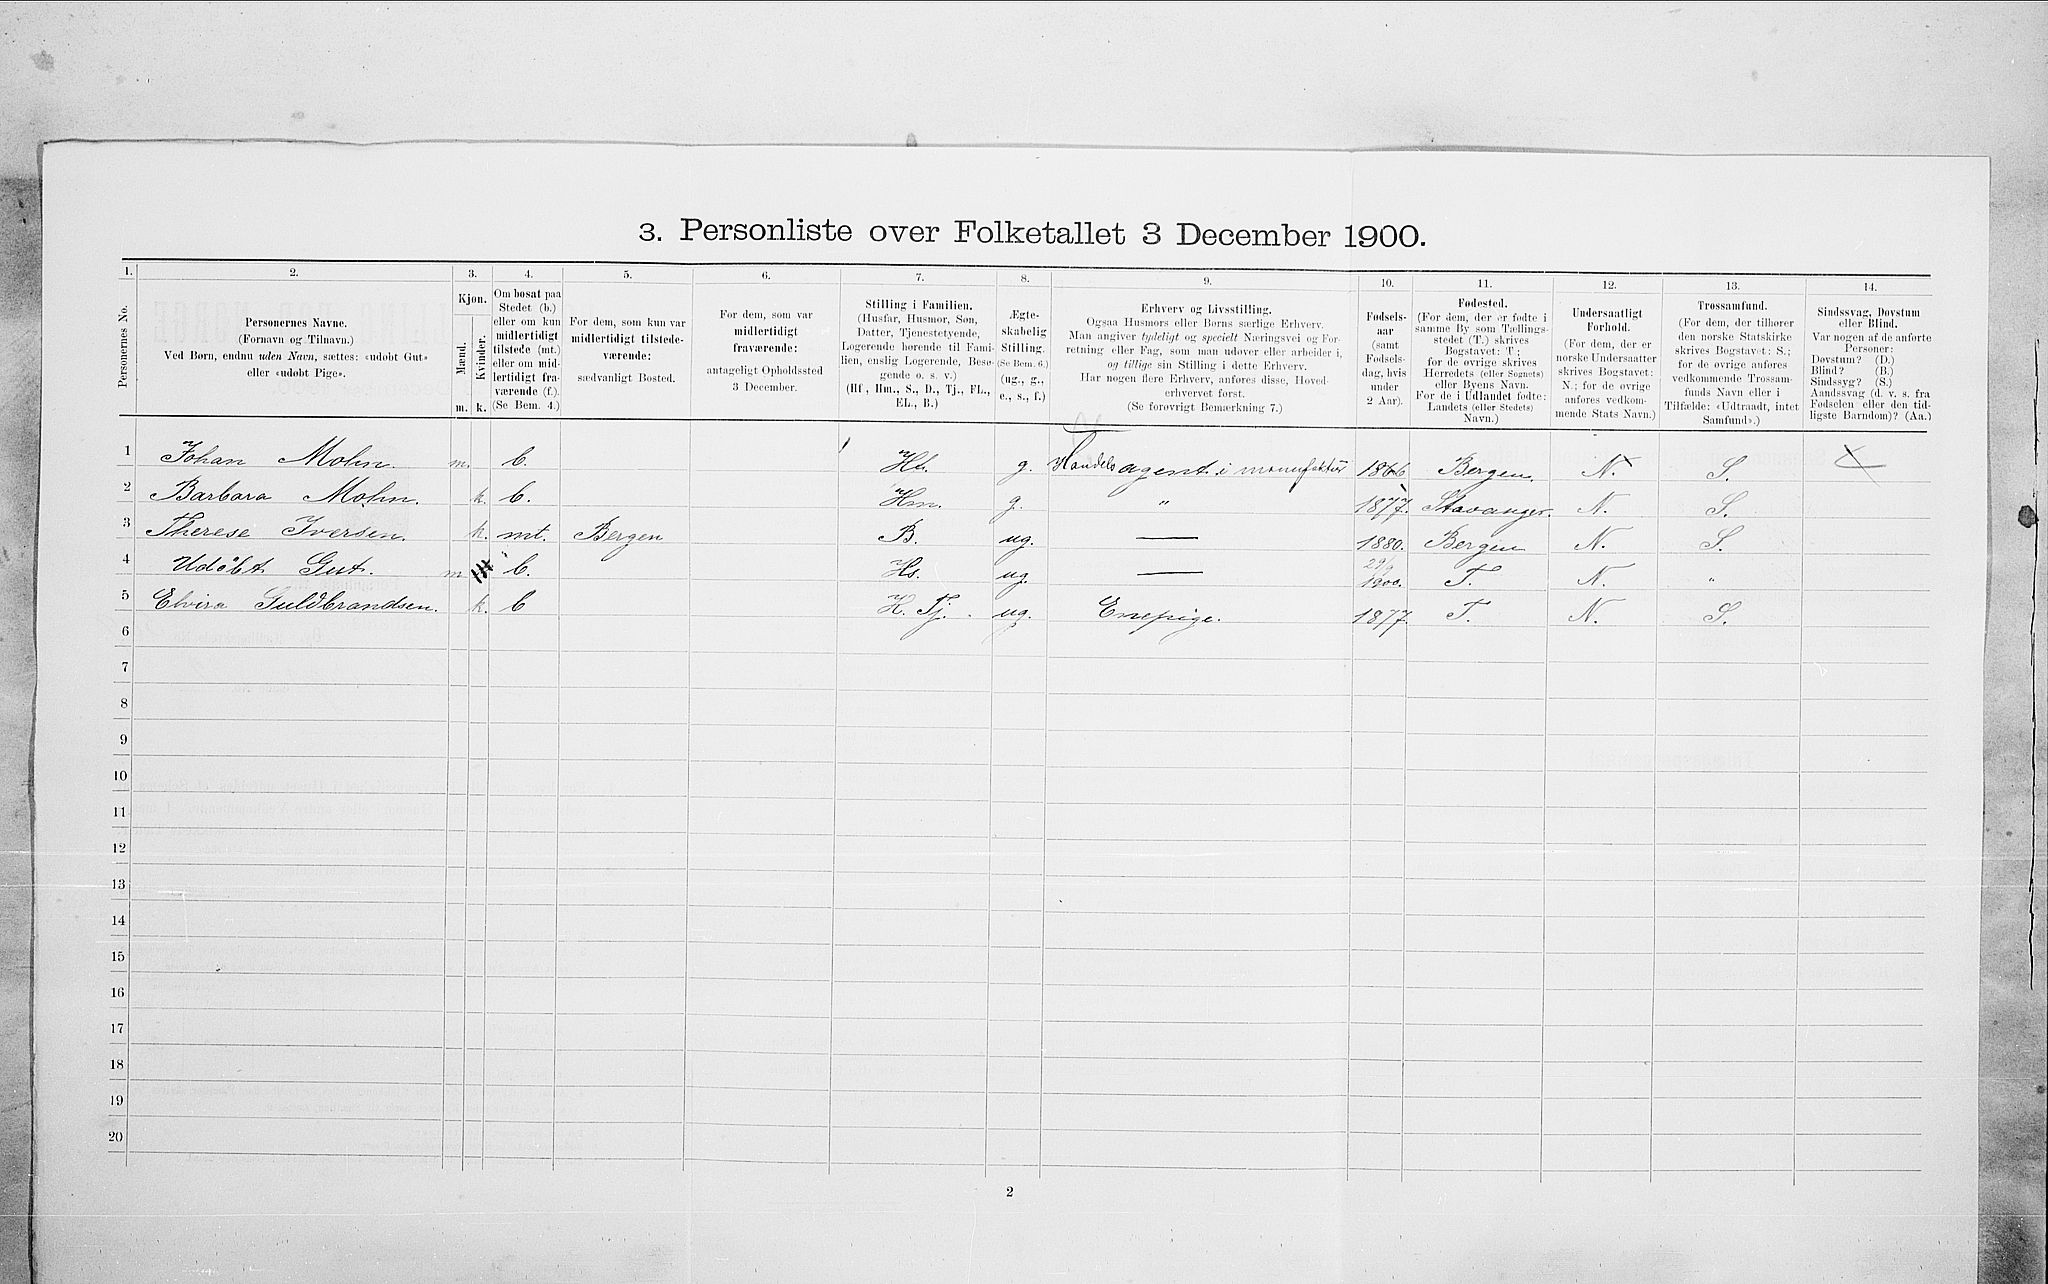 3. Personliste over Folketallet 3 December 1900.
1. 2. 3. 4. 5. 6. 7. 8. 9. 10. 11. 12. 13. 14.
Personernes No.
Personernes Navne.
(Fornavn og Tilnavn.)
Ved Børn, endnu uden Navn, sættes: «udøbt Gut»
eller «udøbt Pige».
Kjøn.
Mænd.
Kvinder.
m. k.
Om bosat paa
Stedet (b.)
eller om kun
midlertidigt
tilstede (mt.)
eller om mid-
lertidigt fra-
værende (f.).
(Se Bem. 4.)
For dem, som kun var
midlertidigt tilstede-
værende:
sædvanligt Bosted.
For dem, som var
midlertidigt
fraværende:
antageligt Opholdssted
3 December.
Stilling i Familien.
(Husfar, Husmor, Søn,
Datter, Tjenestetyende,
Logerende hørende til Fami-
lien, enslig Logerende, Besø-
gende o. s. v.)
(Hf., Hm., S., D., Tj., FL.,
EL., B.)
Ægte-
skabelig
Stilling.
(Se Bem. 6.)
(ug., g.,
e., s., f.)
Erhverv og Livsstilling.
Ogsaa Husmors eller Børns særlige Erhverv.
Man angiver tydeligt og specielt Næringsvei og For-
retning eller Fag, som man udøver eller arbeider i,
og tillige sin Stilling i dette Erhverv.
Har nogen flere Erhverv, anføres disse, Hoved-
erhvervet først.
(Se forøvrigt Bemærkning 7.)
Fødsels-
aar
(samt
Fødsels-
dag, hvis
under
2 Aar).
Fødested.
(For dem, der er fødte i
samme By som Tællings-
stedet (T.) skrives
Bogstavet: T.;
for de øvrige skrives
Herredets (eller Sognets)
eller Byens Navn.
For de i Udlandet fødte:
Landets (eller Stedets)
Navn.)
Undersaatligt
Forhold.
(For dem, der er
norske Undersaatter
skrives Bogstavet:
N.; for de øvrige
anføres vedkom-
mende Stats Navn.)
Trossamfund.
(For dem, der tilhører
den norske Statskirke
skrives Bogstavet: S.;
for de øvrige anføres
vedkommende Trossam-
funds Navn eller i
Tilfælde: «Udtraadt, intet
Samfund».)
Sindssvag, Døvstum
eller Blind.
Var nogen af de anførte
Personer:
Døvstum? (D.)
Blind? (B.)
Sindssyg? (S.)
Aandssvag (d. v. s. fra
Fødselen eller den tid-
ligste Barndom)? (Aa.)
1 Johan Mohn. m. b. Hf. g. Handelsagent i manufaktur 1866 Bergen. N. S.
2 Barbara Mohn. k. b. Hm. g. " 1877. Stavanger. N. S.
3 Therese Iversen. k. mt. Bergen B. ug. — 1880. Bergen N. S.
4 Udøbt Gut. m b. Hs. ug. — 29/9 1900. T. N. "
5 Elvira Guldbrandsen. k. b H. Tj. ug. Enepige. 1877. T. N. S.
6
7
8
9
10
11
12
13
14
15
16
17
18
19
20
2